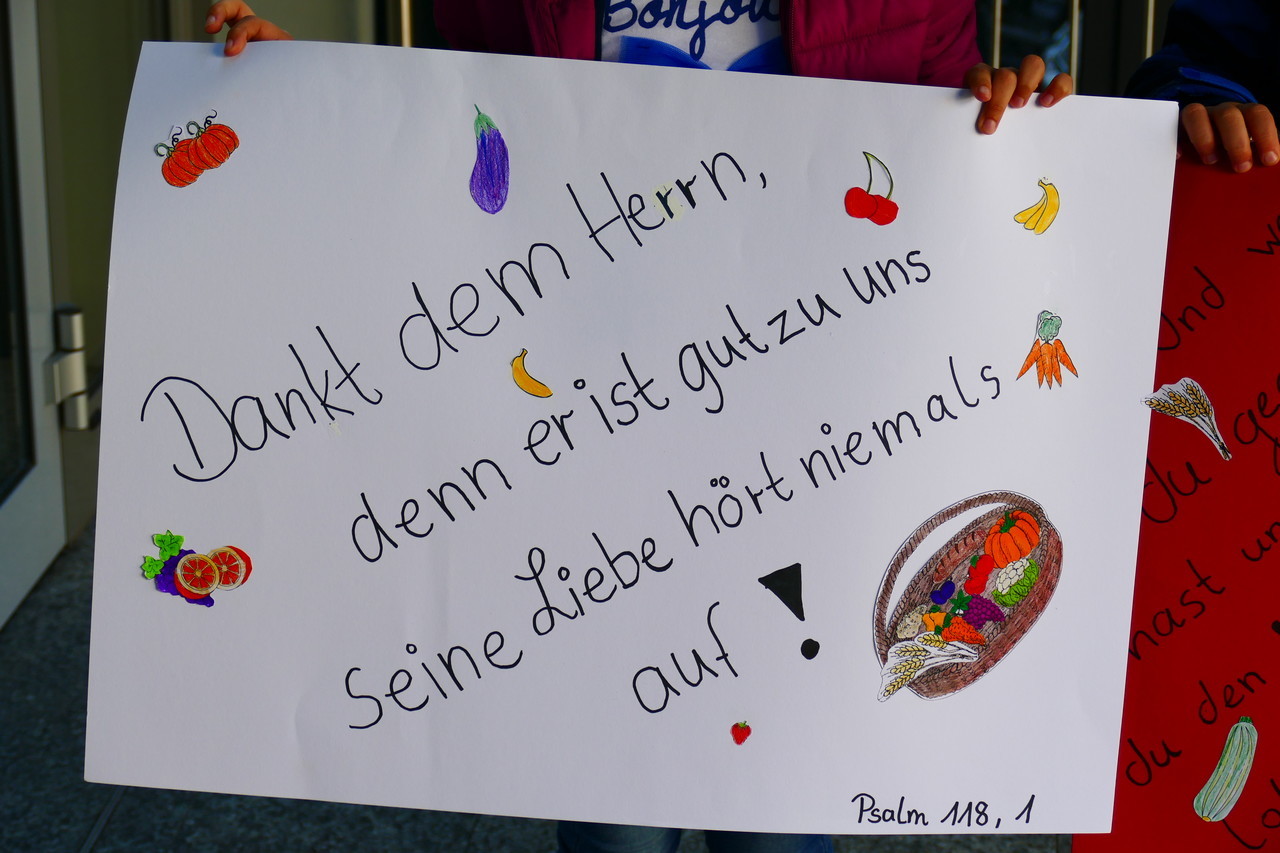 Bonjour
Dankt dem Herrn,
denn er ist gut zu uns
Seine Liebe hört niemals
auf!
Psalm 118, 1
Und
du
hast
du den